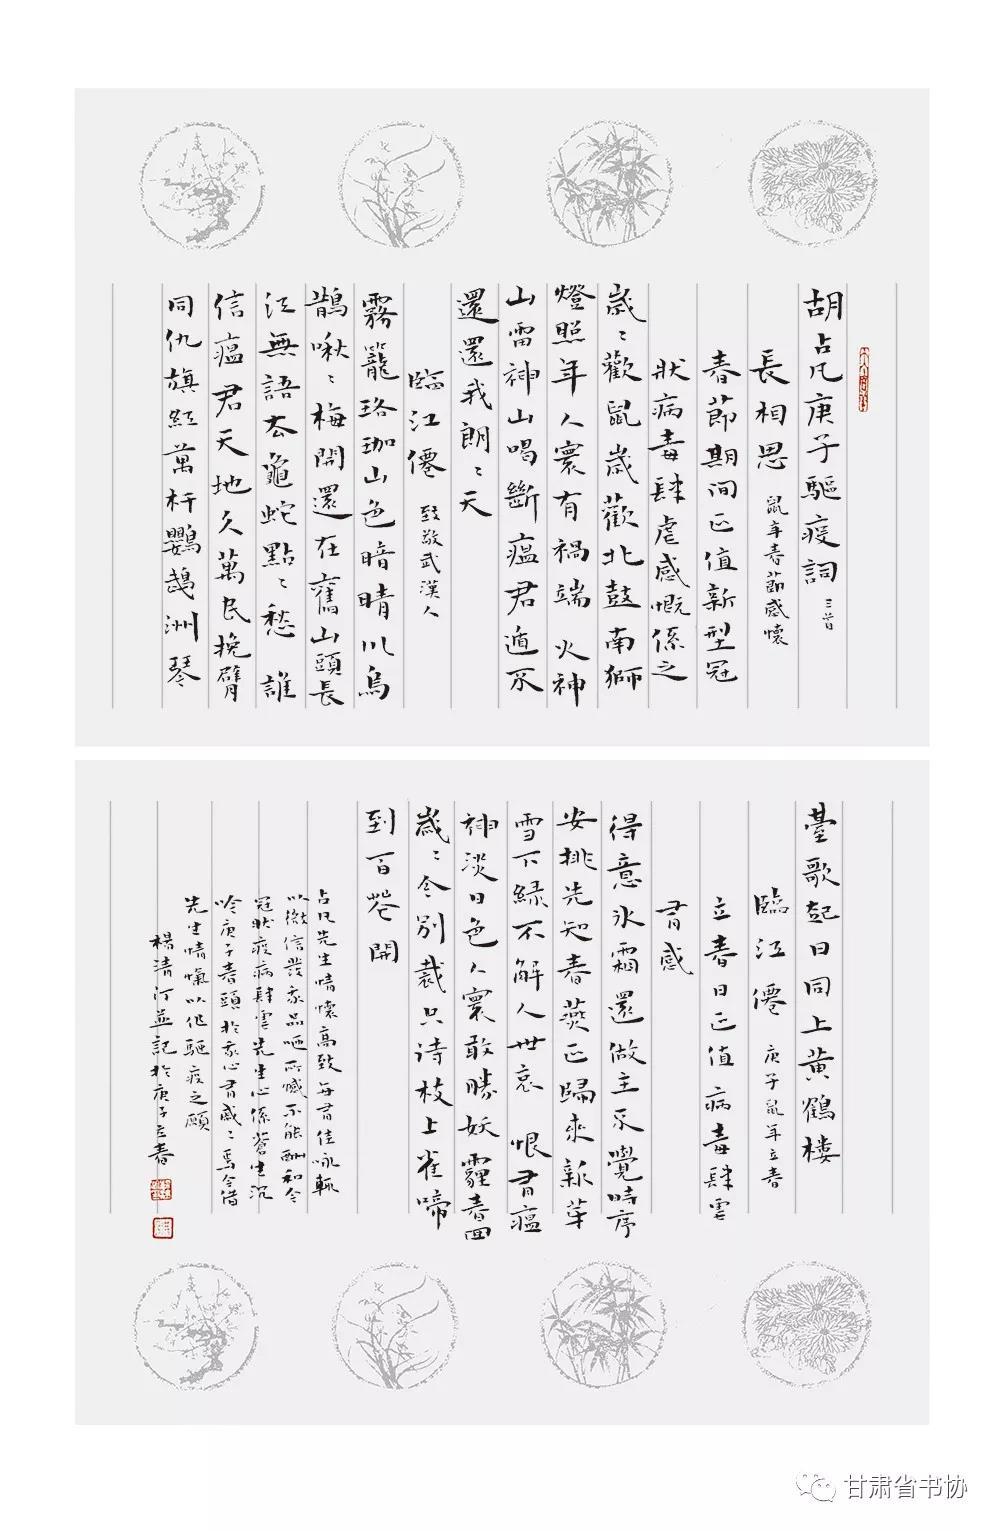 胡占凡庚子驅疫詞 三首
長相思 鼠年春節感懷
春節期间正值新型冠
狀病毒肆虐感慨係之
歲〻歡鼠歲歡北鼓南獅
燈照年人寰有禍端 火神
山雷神山喝斷瘟君遁不
還還我朗〻天
臨江僊 致敬武漢人
霧籠珞珈山色暗晴川烏
鵲啾〻梅開還在舊山頭長
江無語去龜蛇點〻愁 誰
信瘟君天地久萬民挽臂
同仇旗紅萬杆鸚鵡洲琴
臺歌起日同上黄鶴樓
臨江僊 庚子鼠年立春
立春日正值病毒肆雪
有感
得意冰霜還做主不覺時序
安排先知春燕正歸來新芽
雪下緑不解人世哀 恨有瘟
神淡日色人寰敢勝妖霾春回
歲〻今别裁只待枝上雀啼
到百花開
占凡先生情懷高致每有佳咏輒
以微信發我品咂所憾不能酬和今
冠狀疫病肆雪先生心係蒼生沉
吟庚子春頭於我心有感〻焉今借
先生情懷以作驅疫之願
楊清汀並記於庚子立春
甘肃省书协